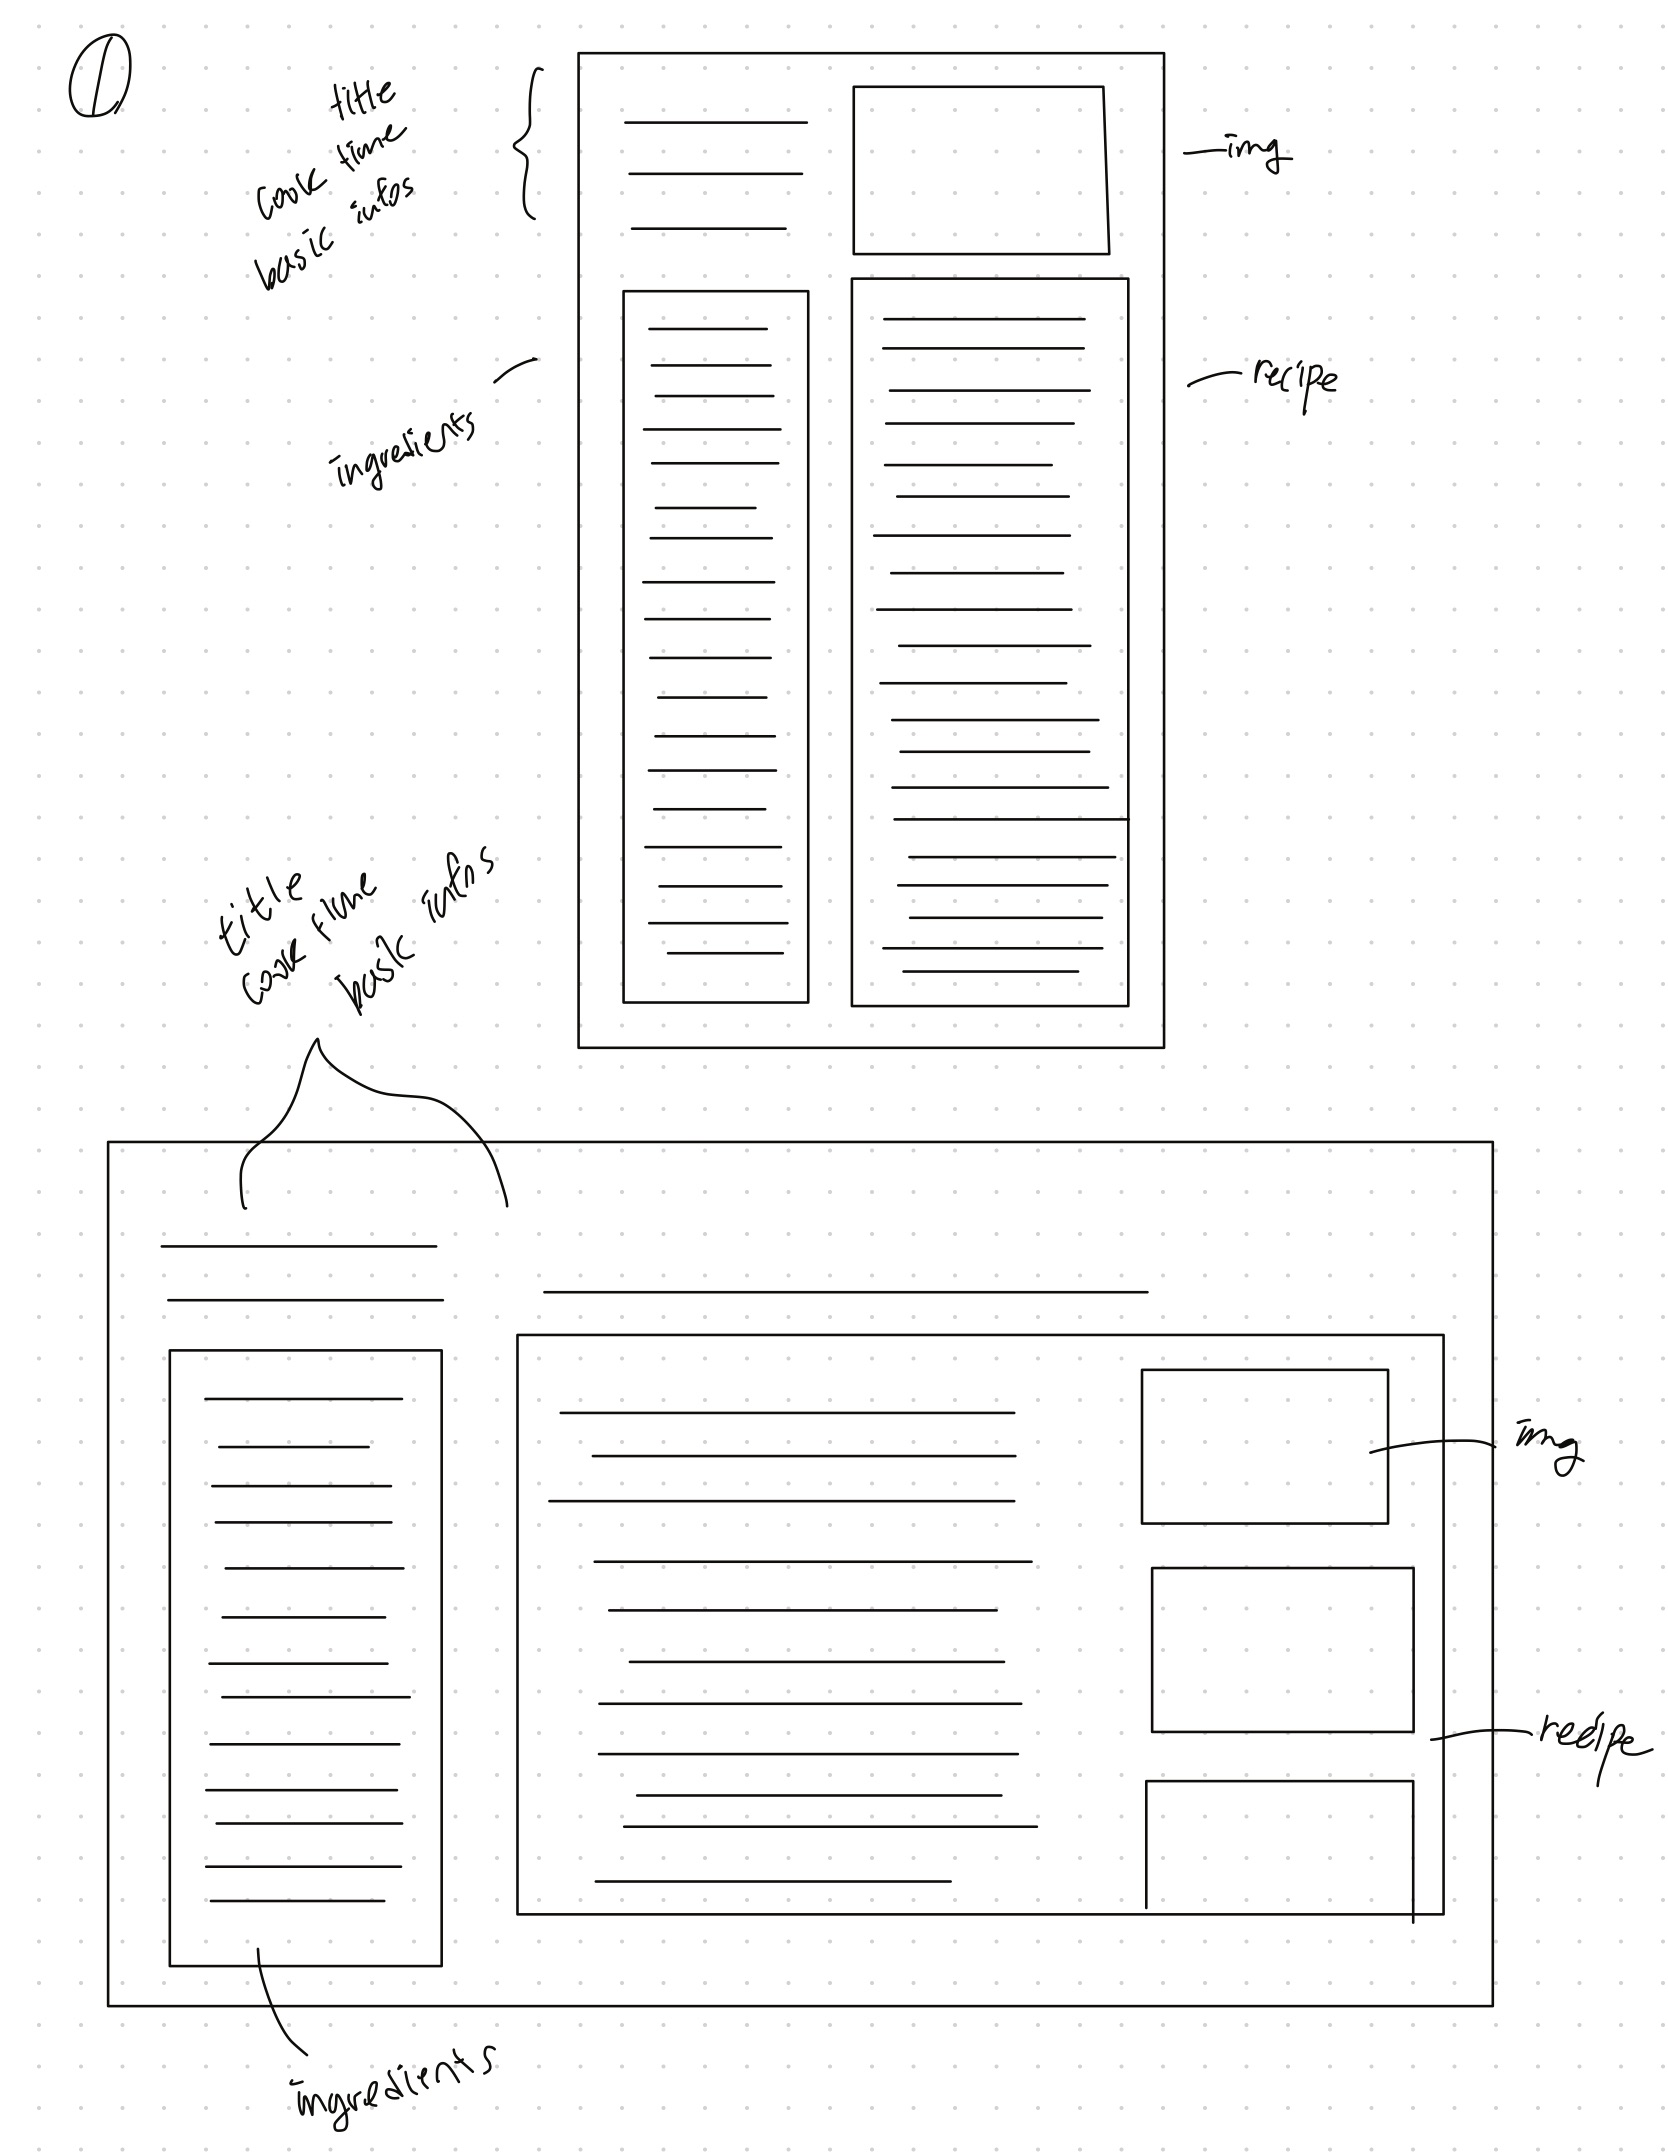 1
title
cook time
basic infos
img
ingredients
recipe
title
cook time
basic infos
img
recipe
ingredients